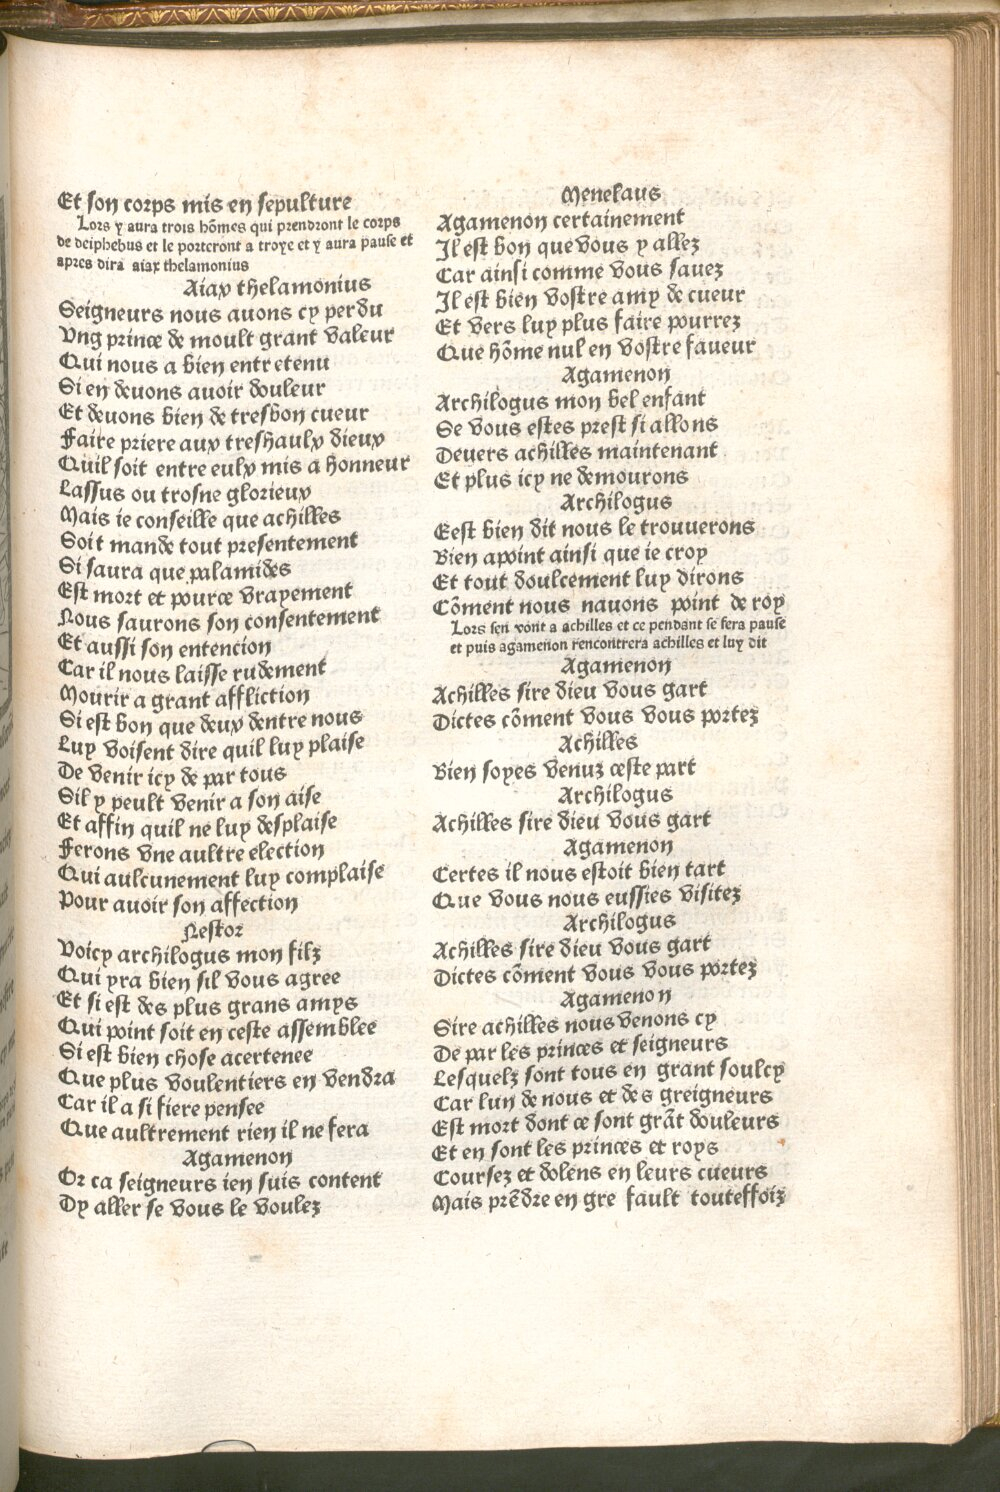 Et son corps mis en sepulture
Lors y aura trois hõmes qui prendront le corps
de deiphebus et le porteront a troye et y aura pause et
apres dira aiax thelamonius
Aiax thelamonius
Seigneurs nous auons cy perdu
Vng prince de moult grant valeur
Qui nous a bien entretenu
Si en deuons auoir douleur
Et deuons bien de tresbon cueur
Faire priere aux treshaulx dieux
Quil soit entre eulx mis a honneur
Lassus ou trosne glorieux
Mais ie conseille que achilles
Soit mande tout presentement
Si saura que palamides
Est mort et pource vrayement
Nous saurons son consentement
Et aussi son entencion
Car il nous laisse rudement
Mourir a grant affliction
Si est bon que deux dentre nous
Luy voisent dire quil luy plaise
De venir icy de par tous
Sil y peult venir a son aise
Et affin quil ne luy desplaise
Ferons vne aultre election
Qui aulcunement luy complaise
Pour auoir son affection
Nestor
Voicy archilogus mon filz
Qui yra bien sil vous agree
Et si est des plus grans amys
Qui point soit en ceste assemblee
Si est bien chose acertenee
Que plus voulentiers en vendra
Car il a si fiere pensee
Que aultrement rien il ne fera
Agamenon
Or ca seigneurs ien suis content
Dy aller se vous le voulez
Menelaus
Agamenon certainement
Il est bon que vous y allez
Car ainsi comme vous sauez
Il est bien vostre amy de cueur
Et vers luy plus faire pourrez
Que hõme nul en vostre faueur
Agamenon
Archilogus mon bel enfant
Se vous estes prest si allons
Deuers achilles maintenant
Et plus icy ne demourons
Archilogus
Eest bien dit nous le trouuerons
Bien apoint ainsi que ie croy
Et tout doulcement luy dirons
Cõment nous nauons point de roy
Lors sen vont a achilles et ce pendant se fera pause
et puis agamenon rencontrera achilles et luy dit
Agamenon
Achilles sire dieu vous gart
Dictes cõment vous vous portez
Achilles
Bien soyes venuz ceste part
Archilogus
Achilles sire dieu vous gart
Agamenon
Certes il nous estoit bien tart
Que vous nous eussies visitez
Archilogus
Achilles sire dieu vous gart
Dictes cõment vous vous portez
Agamenon
Sire achilles nous venons cy
De par les princes et seigneurs
Lesquelz sont tous en grant soulcy
Car lun de nous et des greigneurs
Est mort dont ce sont grãt douleurs
Et en sont les princes et roys
Coursez et dolens en leurs cueurs
Mais prẽdre en gre fault touteffoiz